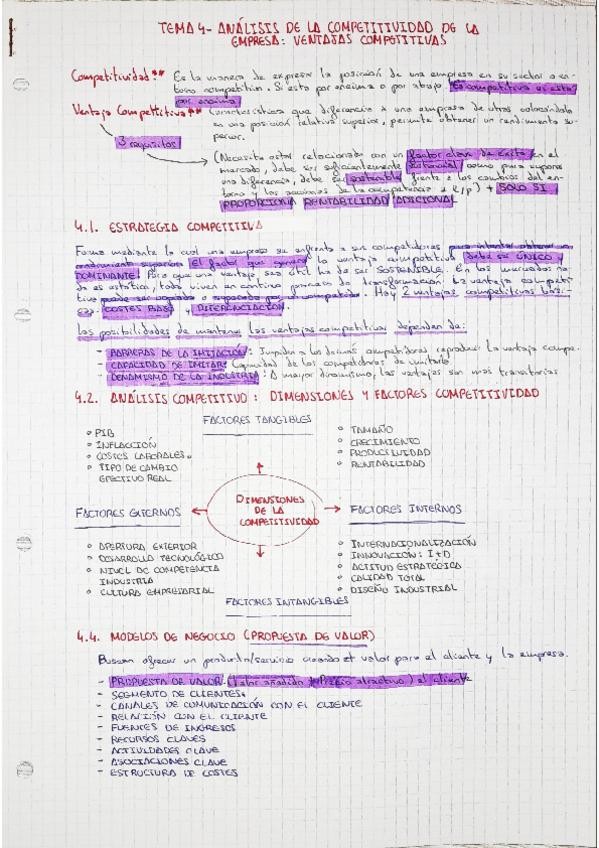 TEMA 4- ANÁLISIS DE LA COMPETITIVIDAD DE LA
EMPRESA: VENTAJAS COMPETITIVAS
Competitividad: Es la manera de expresar la posición de una empresa en su sector o en-
torno competitivo. Si esta por encima o por abajo. Es competitiva si está
por encima
Ventaja Competitiva: características que diferencia a una empresa de otras colocandola
en una posición relativa superior, permite obtener un rendimiento su-
perior.
3 requisitos
(Necesita estar relacionado con un factor clave de éxito en el
mercado, debe ser suficientemente sustancial como para suponer
una diferencia, debe ser sostenible frente a los cambios del en-
torno y las acciones de la competencia a l/p) + SOLO SI
PROPORCIONA RENTABILIDAD ADICIONAL
4.1. ESTRATEGIA COMPETITIVA
Forma mediante la cual una empresa se enfrenta a sus competidores para intentar obtener un
rendimiento superior. El factor que genera la ventaja competitiva debe ser ÚNICO y
DOMINANTE. Para que una ventaja sea útil ha de ser SOSTENIBLE. En los mercados na-
da es estático, todo viven en continuo proceso de transformación. La ventaja competi-
tiva puede ser igualada o superada por el competidor. Hay 2 ventajas competitivas bási-
cas: COSTES BAJOS y DIFERENCIACIÓN.
Las posibilidades de mantener las ventajas competitivas dependen de:
- BARRERAS DE LA IMITACIÓN: Impiden a los demás competidores reproducir la ventaja compe.
- CAPACIDAD DE IMITAR: Capacidad de los competidores de imitarlo
- DINAMISMO DE LA INDUSTRIA: A mayor dinamismo, las ventajas son más transitorias
4.2. ANÁLISIS COMPETITIVO: DIMENSIONES Y FACTORES COMPETITIVIDAD
FACTORES TANGIBLES
° PIB
° INFLACCIÓN
° COSTES LABORALES.
° TIPO DE CAMBIO
EFECTIVO REAL
° TAMAÑO
° CRECIMIENTO
° PRODUCTIVIDAD
° RENTABILIDAD
FACTORES EXTERNOS
DIMENSIONES
DE LA
COMPETITIVIDAD
FACTORES INTERNOS
° APERTURA EXTERIOR
° DESARROLLO TECNOLÓGICO
° NIVEL DE COMPETENCIA
INDUSTRIA
° CULTURA EMPRESARIAL
° INTERNACIONALIZACIÓN
° INNOVACIÓN: I+D
° ACTITUD ESTRATÉGICA
° CALIDAD TOTAL
° DISEÑO INDUSTRIAL
FACTORES INTANGIBLES
4.4. MODELOS DE NEGOCIO (PROPUESTA DE VALOR)
Buscan ofrecer un producto/servicio creando valor para el cliente y la empresa.
- PROPUESTA DE VALOR (Valor añadido + Precio atractivo) al cliente
- SEGMENTO DE CLIENTES.
- CANALES DE COMUNICACIÓN CON EL CLIENTE
- RELACIÓN CON EL CLIENTE
- FUENTES DE INGRESOS
- RECURSOS CLAVES
- ACTIVIDADES CLAVE
- ASOCIACIONES CLAVE
- ESTRUCTURA DE COSTES